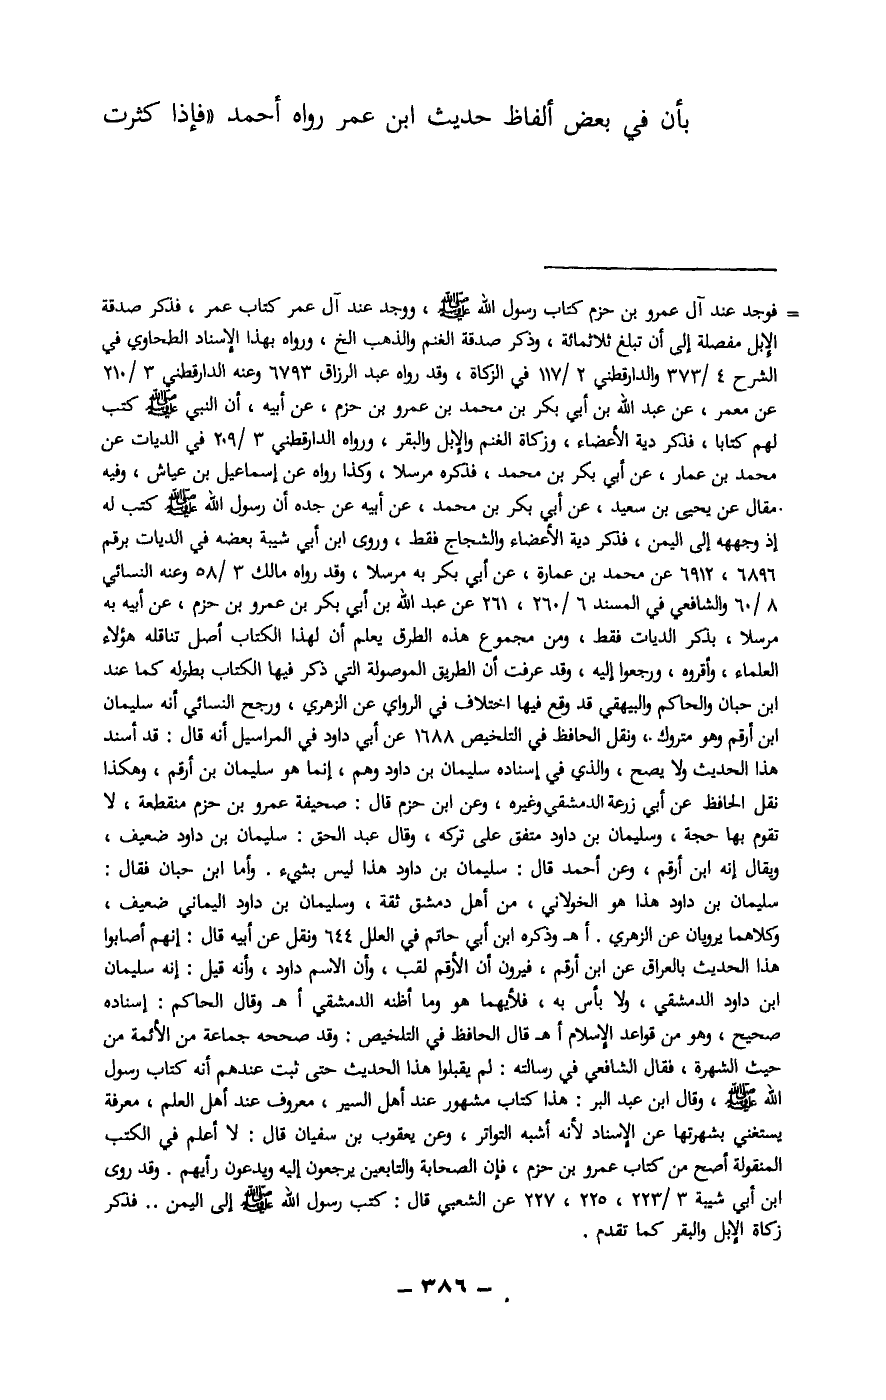 بأن في بعض ألفاظ حديث ابن عمر رواه أحمد «فإذا كثرت
= فوجد عند آل عمرو بن حزم كتاب رسول الله ﷺ ، ووجد عند آل عمر كتاب عمر ، فذكر صدقة
الإبل مفصلة إلى أن تبلغ ثلاثمائة ، وذكر صدقة الغنم والذهب الخ ، ورواه بهذا الإسناد الطحاوي في
الشرح ٤ /٣٧٣ والدارقطني ٢ /١١٧ في الزكاة ، وقد رواه عبد الرزاق ٦٧٩٣ وعنه الدارقطني ٣ /٢١٠
عن معمر ، عن عبد الله بن أبي بكر بن محمد بن عمرو بن حزم ، عن أبيه ، أن النبي ﷺ كتب
لهم كتابا ، فذكر دية الأعضاء ، وزكاة الغنم والإبل والبقر ، ورواه الدارقطني ٣ /٢٠٩ في الديات عن
محمد بن عمار ، عن أبي بكر بن محمد ، فذكره مرسلا ، وكذا رواه عن إسماعيل بن عياش ، وفيه
مقال عن يحيى بن سعيد ، عن أبي بكر بن محمد ، عن أبيه عن جده أن رسول الله ﷺ كتب له
إذ وجهه إلى اليمن ، فذكر دية الأعضاء والشجاج فقط ، وروى ابن أبي شيبة بعضه في الديات برقم
٦٨٩٦ ، ٦٩١٢ عن محمد بن عمارة ، عن أبي بكر به مرسلا ، وقد رواه مالك ٣ /٥٨ وعنه النسائي
٨ /٦٠ والشافعي في المسند ٦ /٢٦٠ ، ٢٦١ عن عبد الله بن أبي بكر بن عمرو بن حزم ، عن أبيه به
مرسلا ، بذكر الديات فقط ، ومن مجموع هذه الطرق يعلم أن لهذا الكتاب أصل تناقله هؤلاء
العلماء ، وأقروه ، ورجعوا إليه ، وقد عرفت أن الطريق الموصولة التي ذكر فيها الكتاب بطوله كما عند
ابن حبان والحاكم والبيهقي قد وقع فيها اختلاف في الرواي عن الزهري ، ورجح النسائي أنه سليمان
ابن أرقم وهو متروك ، ونقل الحافظ في التلخيص ١٦٨٨ عن أبي داود في المراسيل أنه قال : قد أسند
هذا الحديث ولا يصح ، والذي في إسناده سليمان بن داود وهم ، إنما هو سليمان بن أرقم ، وهكذا
نقل الحافظ عن أبي زرعة الدمشقي وغيره ، وعن ابن حزم قال : صحيفة عمرو بن حزم منقطعة ، لا
تقوم بها حجة ، وسليمان بن داود متفق على تركه ، وقال عبد الحق : سليمان بن داود ضعيف ،
ويقال إنه ابن أرقم ، وعن أحمد قال : سليمان بن داود هذا ليس بشيء . وأما ابن حبان فقال :
سليمان بن داود هذا هو الخولاني ، من أهل دمشق ثقة ، وسليمان بن داود اليماني ضعيف ،
وكلاهما يرويان عن الزهري . أ هـ وذكره ابن أبي حاتم في العلل ٦٤٤ ونقل عن أبيه قال : إنهم أصابوا
هذا الحديث بالعراق عن ابن أرقم ، فيرون أن الأرقم لقب ، وأن الاسم داود ، وأنه قيل : إنه سليمان
ابن داود الدمشقي ، ولا بأس به ، فلأيهما هو وما أظنه الدمشقي أ هـ وقال الحاكم : إسناده
صحيح ، وهو من قواعد الإسلام أ هـ قال الحافظ في التلخيص : وقد صححه جماعة من الأئمة من
حيث الشهرة ، فقال الشافعي في رسالته : لم يقبلوا هذا الحديث حتى ثبت عندهم أنه كتاب رسول
الله ﷺ ، وقال ابن عبد البر : هذا كتاب مشهور عند أهل السير ، معروف عند أهل العلم ، معرفة
يستغني بشهرتها عن الإسناد لأنه أشبه التواتر ، وعن يعقوب بن سفيان قال : لا أعلم في الكتب
المنقولة أصح من كتاب عمرو بن حزم ، فإن الصحابة والتابعين يرجعون إليه ويدعون رأيهم . وقد روى
ابن أبي شيبة ٣ /٢٢٣ ، ٢٢٥ ، ٢٢٧ عن الشعبي قال : كتب رسول الله ﷺ إلى اليمن .. فذكر
زكاة الإبل والبقر كما تقدم .
– ٣٨٦ –